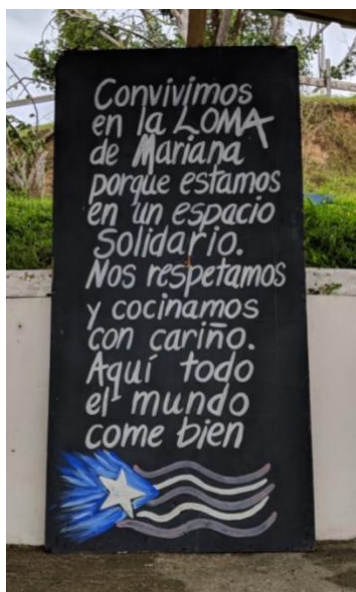 Convivimos
en la LOMA
de Mariana
porque estamos
en un espacio
Solidario.
Nos respetamos
y cocinamos
con cariño.
Aquí todo
el mundo
come bien